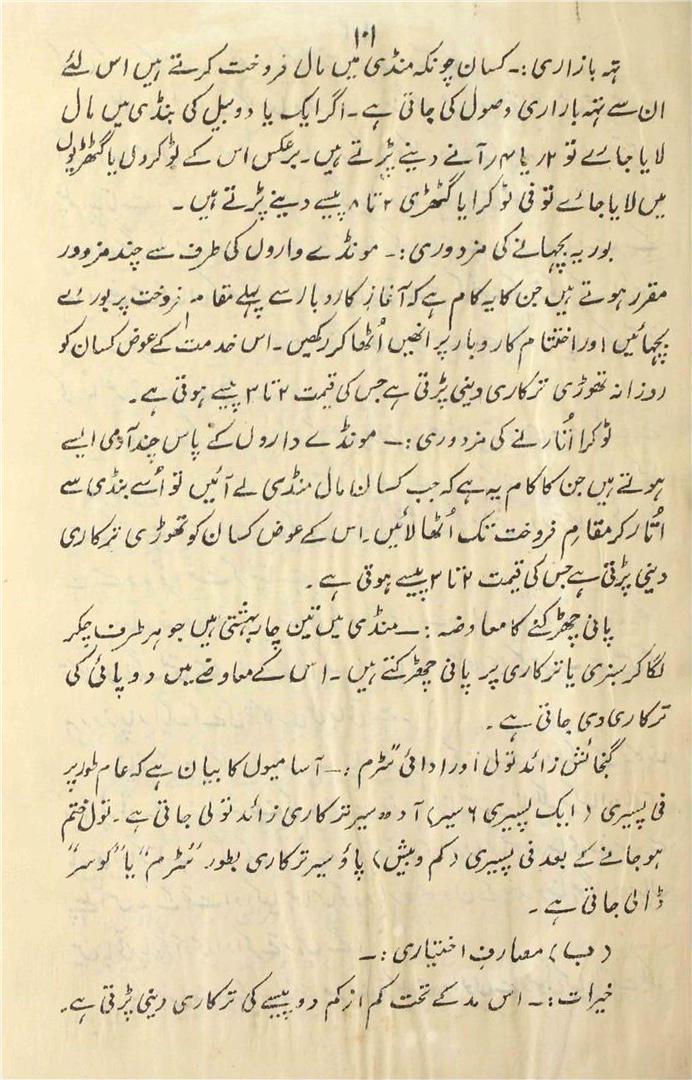 ۱۰۱
تہ بازاری :۔ کسان چونکہ منڈی میں مال فروخت کرتے ہیں اس لئے
ان سے تہہ بازاری وصول کی جاتی ہے۔ اگر ایک یا دو بیل کی بنڈی میں مال
لایا جائے تو ۲ر یا ۴ر آنے دینے پڑتے ہیں۔ برعکس اس کے ٹوکروں یا گٹھڑیوں
میں لایا جائے تو فی ٹوکرا یا گٹھڑی ۲ تا ۸ پیسے دینے پڑتے ہیں ۔
بوریہ بچھانے کی مزدوری :۔ مونڈے واروں کی طرف سے چند مزدور
مقرر ہوتے ہیں جن کا یہ کام ہے کہ آغاز کاروبار سے پہلے مقام فروخت پر بوریے
بچھائیں اور اختتام کاروبار پر انھیں اُٹھا کر رکھیں ۔ اس خدمت کے عوض کسان کو
روزانہ تھوڑی ترکاری دینی پڑتی ہے جس کی قیمت ۲ تا ۳ پیسے ہوتی ہے۔
ٹوکرا اُتارنے کی مزدوری :۔ مونڈے داروں کے پاس چند آدمی ایسے
ہوتے ہیں جن کا کام یہ ہے کہ جب کسان مال منڈی لے آئیں تو اُسے بنڈی سے
اُتار کر مقامِ فروخت تک اُٹھا لائیں ۔ اس کے عوض کسان کو تھوڑی ترکاری
دینی پڑتی ہے جس کی قیمت ۲ تا ۳ پیسے ہوتی ہے ۔
پانی چھڑکنے کا معاوضہ :۔ منڈی میں تین چار بہشتی ہیں جو ہر طرف چکر
لگا کر سبزی یا ترکاری پر پانی چھڑکتے ہیں ۔ اس کے معاوضے میں دو پائی کی
ترکاری دی جاتی ہے ۔
گنجائش زائد تولی اور ادائی سٹرم :۔ آسامیوں کا بیان ہے کہ عام طور پر
فی پسیری ( ایک پسیری ۶ سیر ) آدھ سیر ترکاری زائد تولی جاتی ہے ۔ تول ختم
ہو جانے کے بعد فی پسیری ( کم و بیش ) پاؤ سیر ترکاری بطور "سٹرم" یا "کوسر"
ڈالی جاتی ہے ۔
( ب ) مصارف اختیاری :۔
خیرات :۔ اس مد کے تحت کم از کم دو پیسے کی ترکاری دینی پڑتی ہے۔